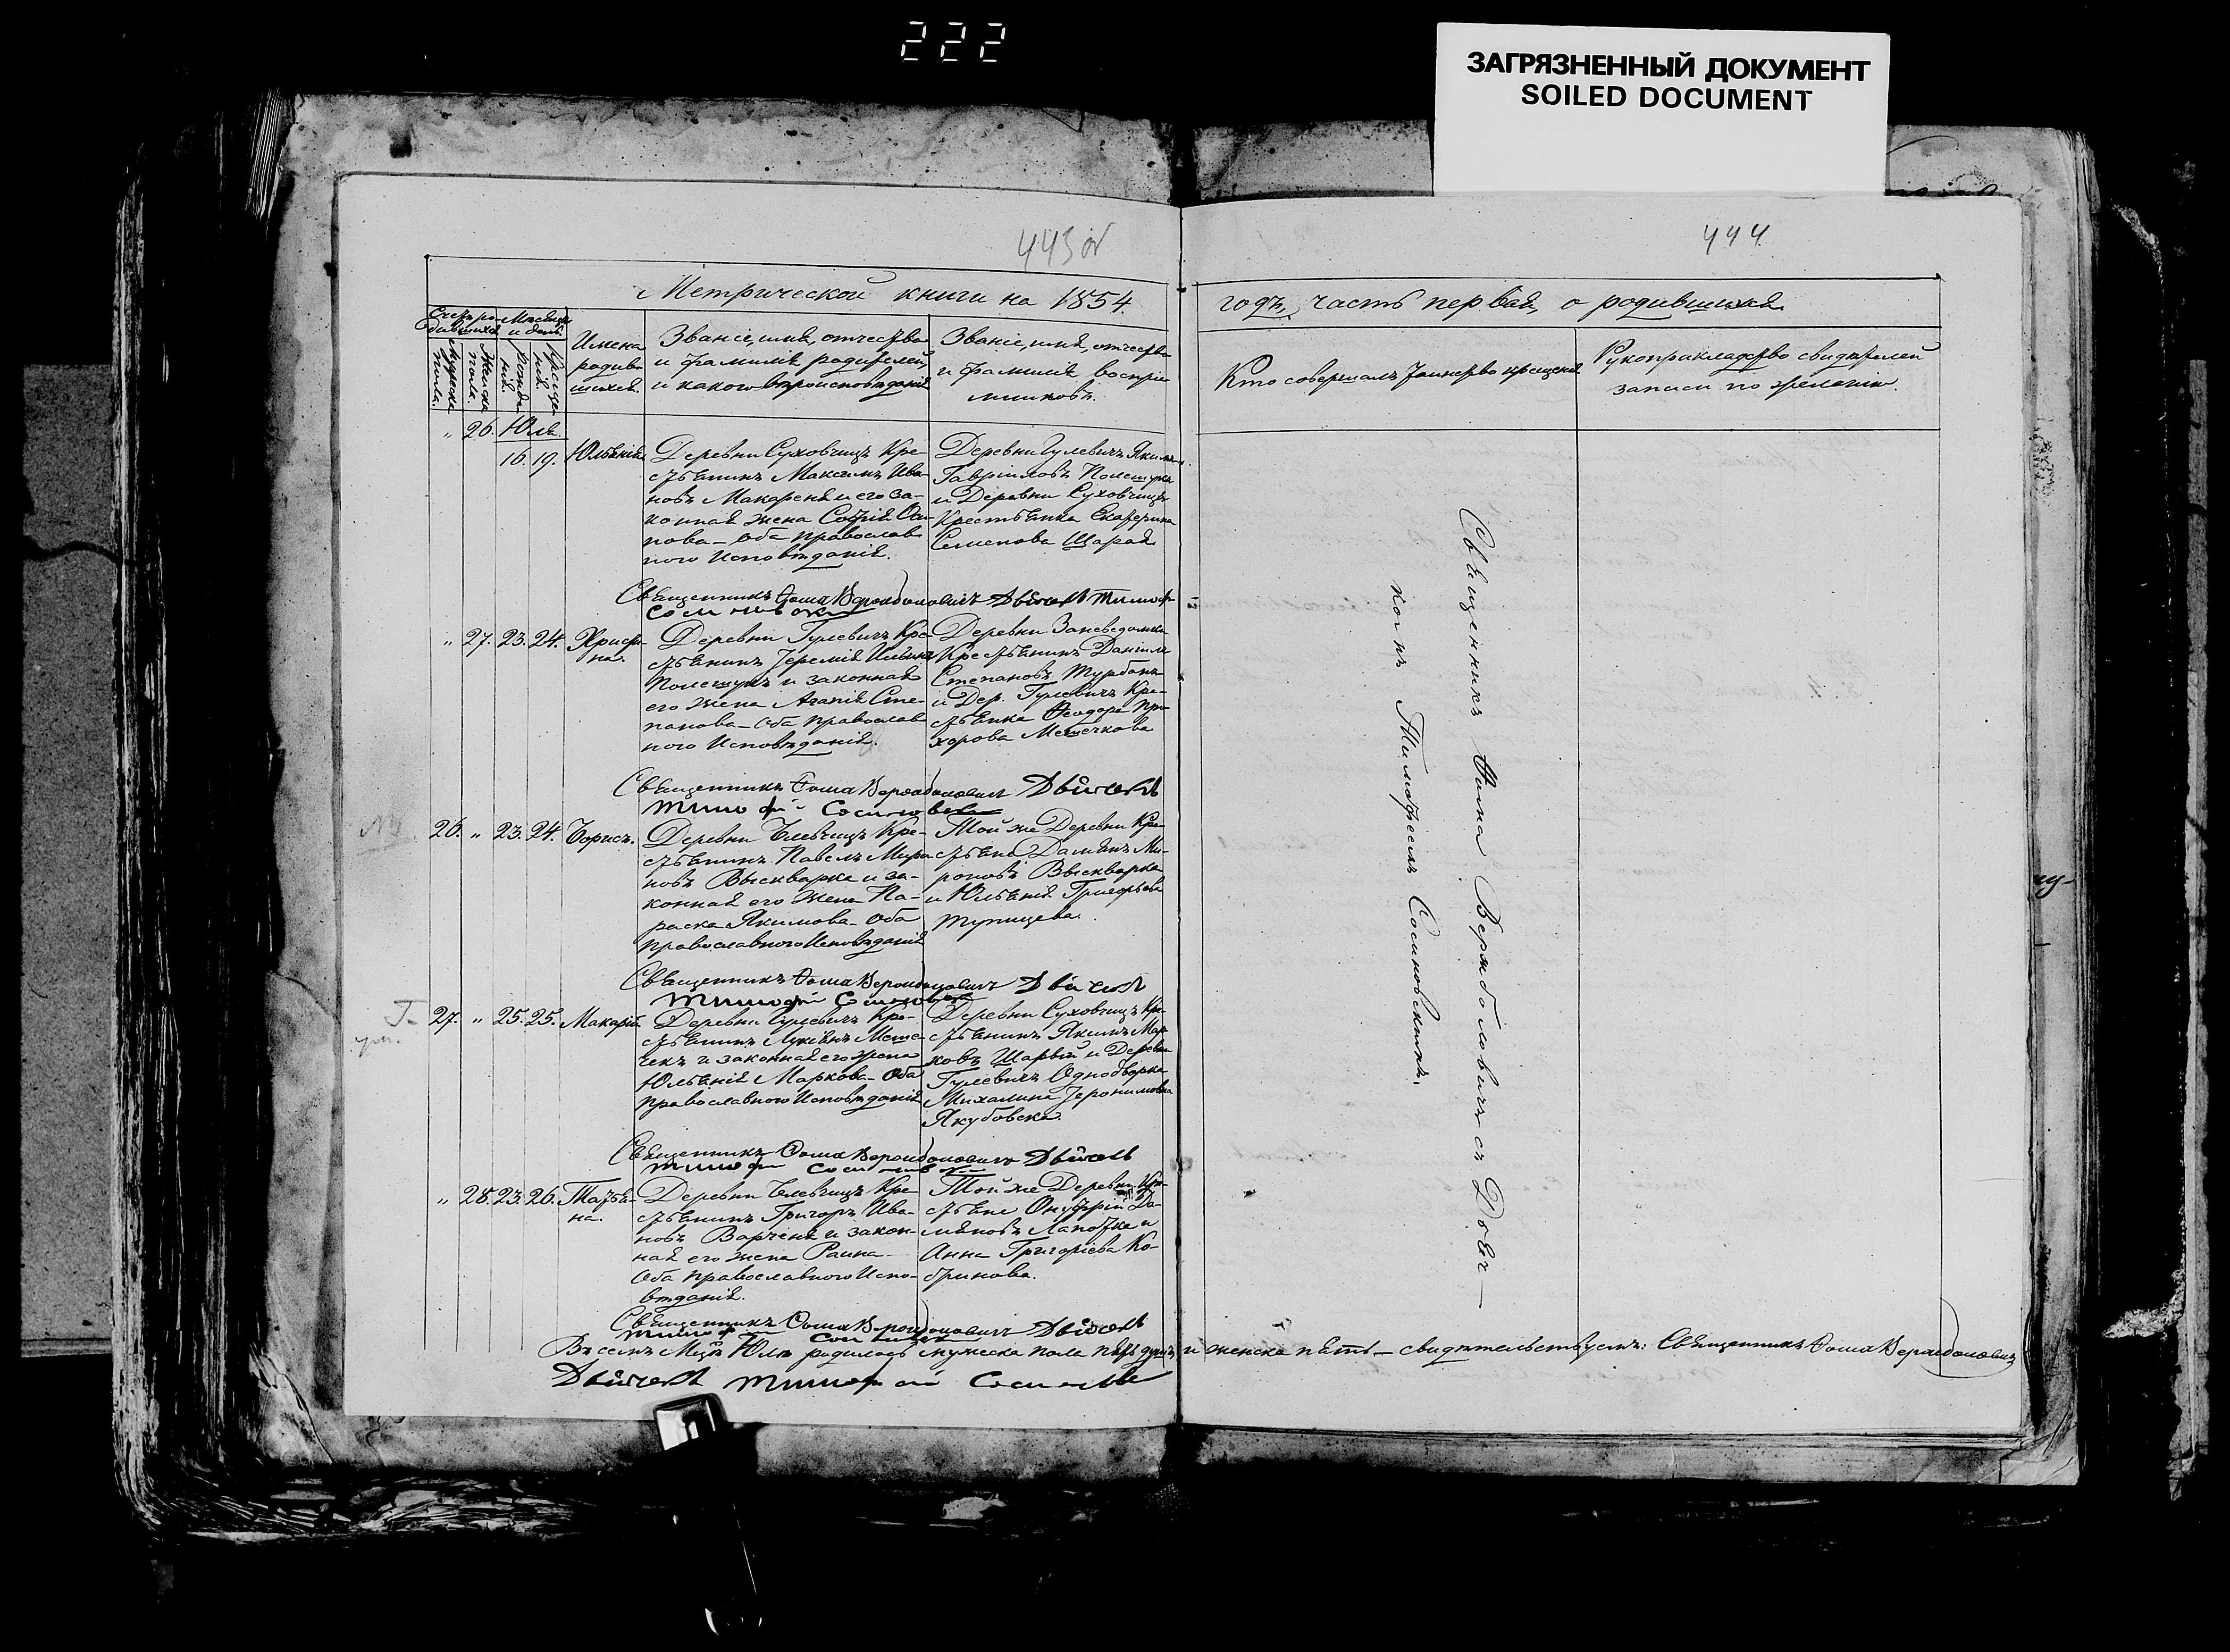 222
ЗАГРЯЗНЕННЫЙ ДОКУМЕНТ
SOILED DOCUMENT
443 об
444
Метрической книги на 1854.
годъ, часть первая, о родившихся
Счетъ ро-
дившихся
Мѣсяцъ
и день.
Мужеска
пола.
Женска
пола.
рожде-
нія.
Креще-
нія.
Имена
родив-
шихся.
Званіе, имя, отчество
и фамилія родителей,
и какого вѣроисповѣданія
Званіе, имя, отчество
и фамилія воспріе-
мниковъ.
Кто совершалъ таинство крещенія
Рукоприкладство свидѣтелей
записи по желанію.
" 26. Юля.
16. 19. Юліянія.
Деревни Суховчицъ Кре-
стьянинъ Максимъ Ива-
новъ Макареня и его за-
конная жена Софія Оси-
пова - Оба православ
ного Исповѣданія.
Деревни Гулевичъ Якимъ
Гавріиловъ Полещукъ
и Деревни Суховчицъ
Крестьянка Екатерина
Семенова Шарая
Священникъ Ѳома Вержболовичъ Дьячекъ Тимоф
Сосиновски
" 27. 23. 24. Христи-
на.
Деревни Гулевичъ Кре-
стьянинъ Іеремія
Полещукъ и законная
его жена Агапія Сте-
панова - Оба православ
ного Исповѣданія.
Деревни
Крестьянинъ Даніилъ
Степановъ Турбанъ
и Дер. Гулевичъ Кре-
стьянка Ѳеодора Про-
хорова Мешечкова
Священникъ Ѳома Вержболовичъ Дьячекъ
Тимофей Сосиновски
26. " 23. 24. Борисъ.
Деревни Клевчицъ Кре-
стьянинъ Павелъ Миро
новъ Выскварка и за-
конная его жена Па-
раска Якимова - Оба
православного Исповѣданія
Той же Деревни Кре-
стьяне Даміянъ Ми-
роновъ Выскварка
и Юліянія Григорьева
Тупицева.
Священникъ Ѳома Вержболовичъ Дьячекъ
Тимофей Сосиновски
27. " 25. 25. Макарій
Деревни Гулевичъ Кре-
стьянинъ Лукіянъ Меше-
чекъ и законная его жена
Юліянія Маркова - Оба
православного Исповѣданія
Деревни Суховчицъ Кре-
стьянинъ Якимъ Мар-
ковъ Шарый и Деревни
Гулевичъ Однодворка
Михалина Іеронимовна
Якубовска.
Священникъ Ѳома Вержболовичъ Дьячекъ
Тимофей Сосиновски
" 28. 23. 26. Татья-
на.
Деревни Клевчицъ Кре-
стьянинъ Григорій Ива-
новъ Варченя и закон-
ная его жена Раина -
Оба православного Испо-
вѣданія.
Той же Деревни Кре-
стьяне Онуфрій Да-
міяновъ Лапотка и
Анна Григоріева Ко-
бринова.
Священникъ Ѳома Вержболовичъ Дьячекъ
Тимофей Сосиновски
Въ семъ Мцѣ Юлѣ родилось мужеска пола пять душъ, и женска пять - свидѣтельствуемъ: Священникъ Ѳома Вержболовичъ
Дьячекъ Тимофей Сосиновски
Священникъ Ѳома Вержболовичъ съ Дьяч-
комъ Тимофеемъ Сосиновскимъ.